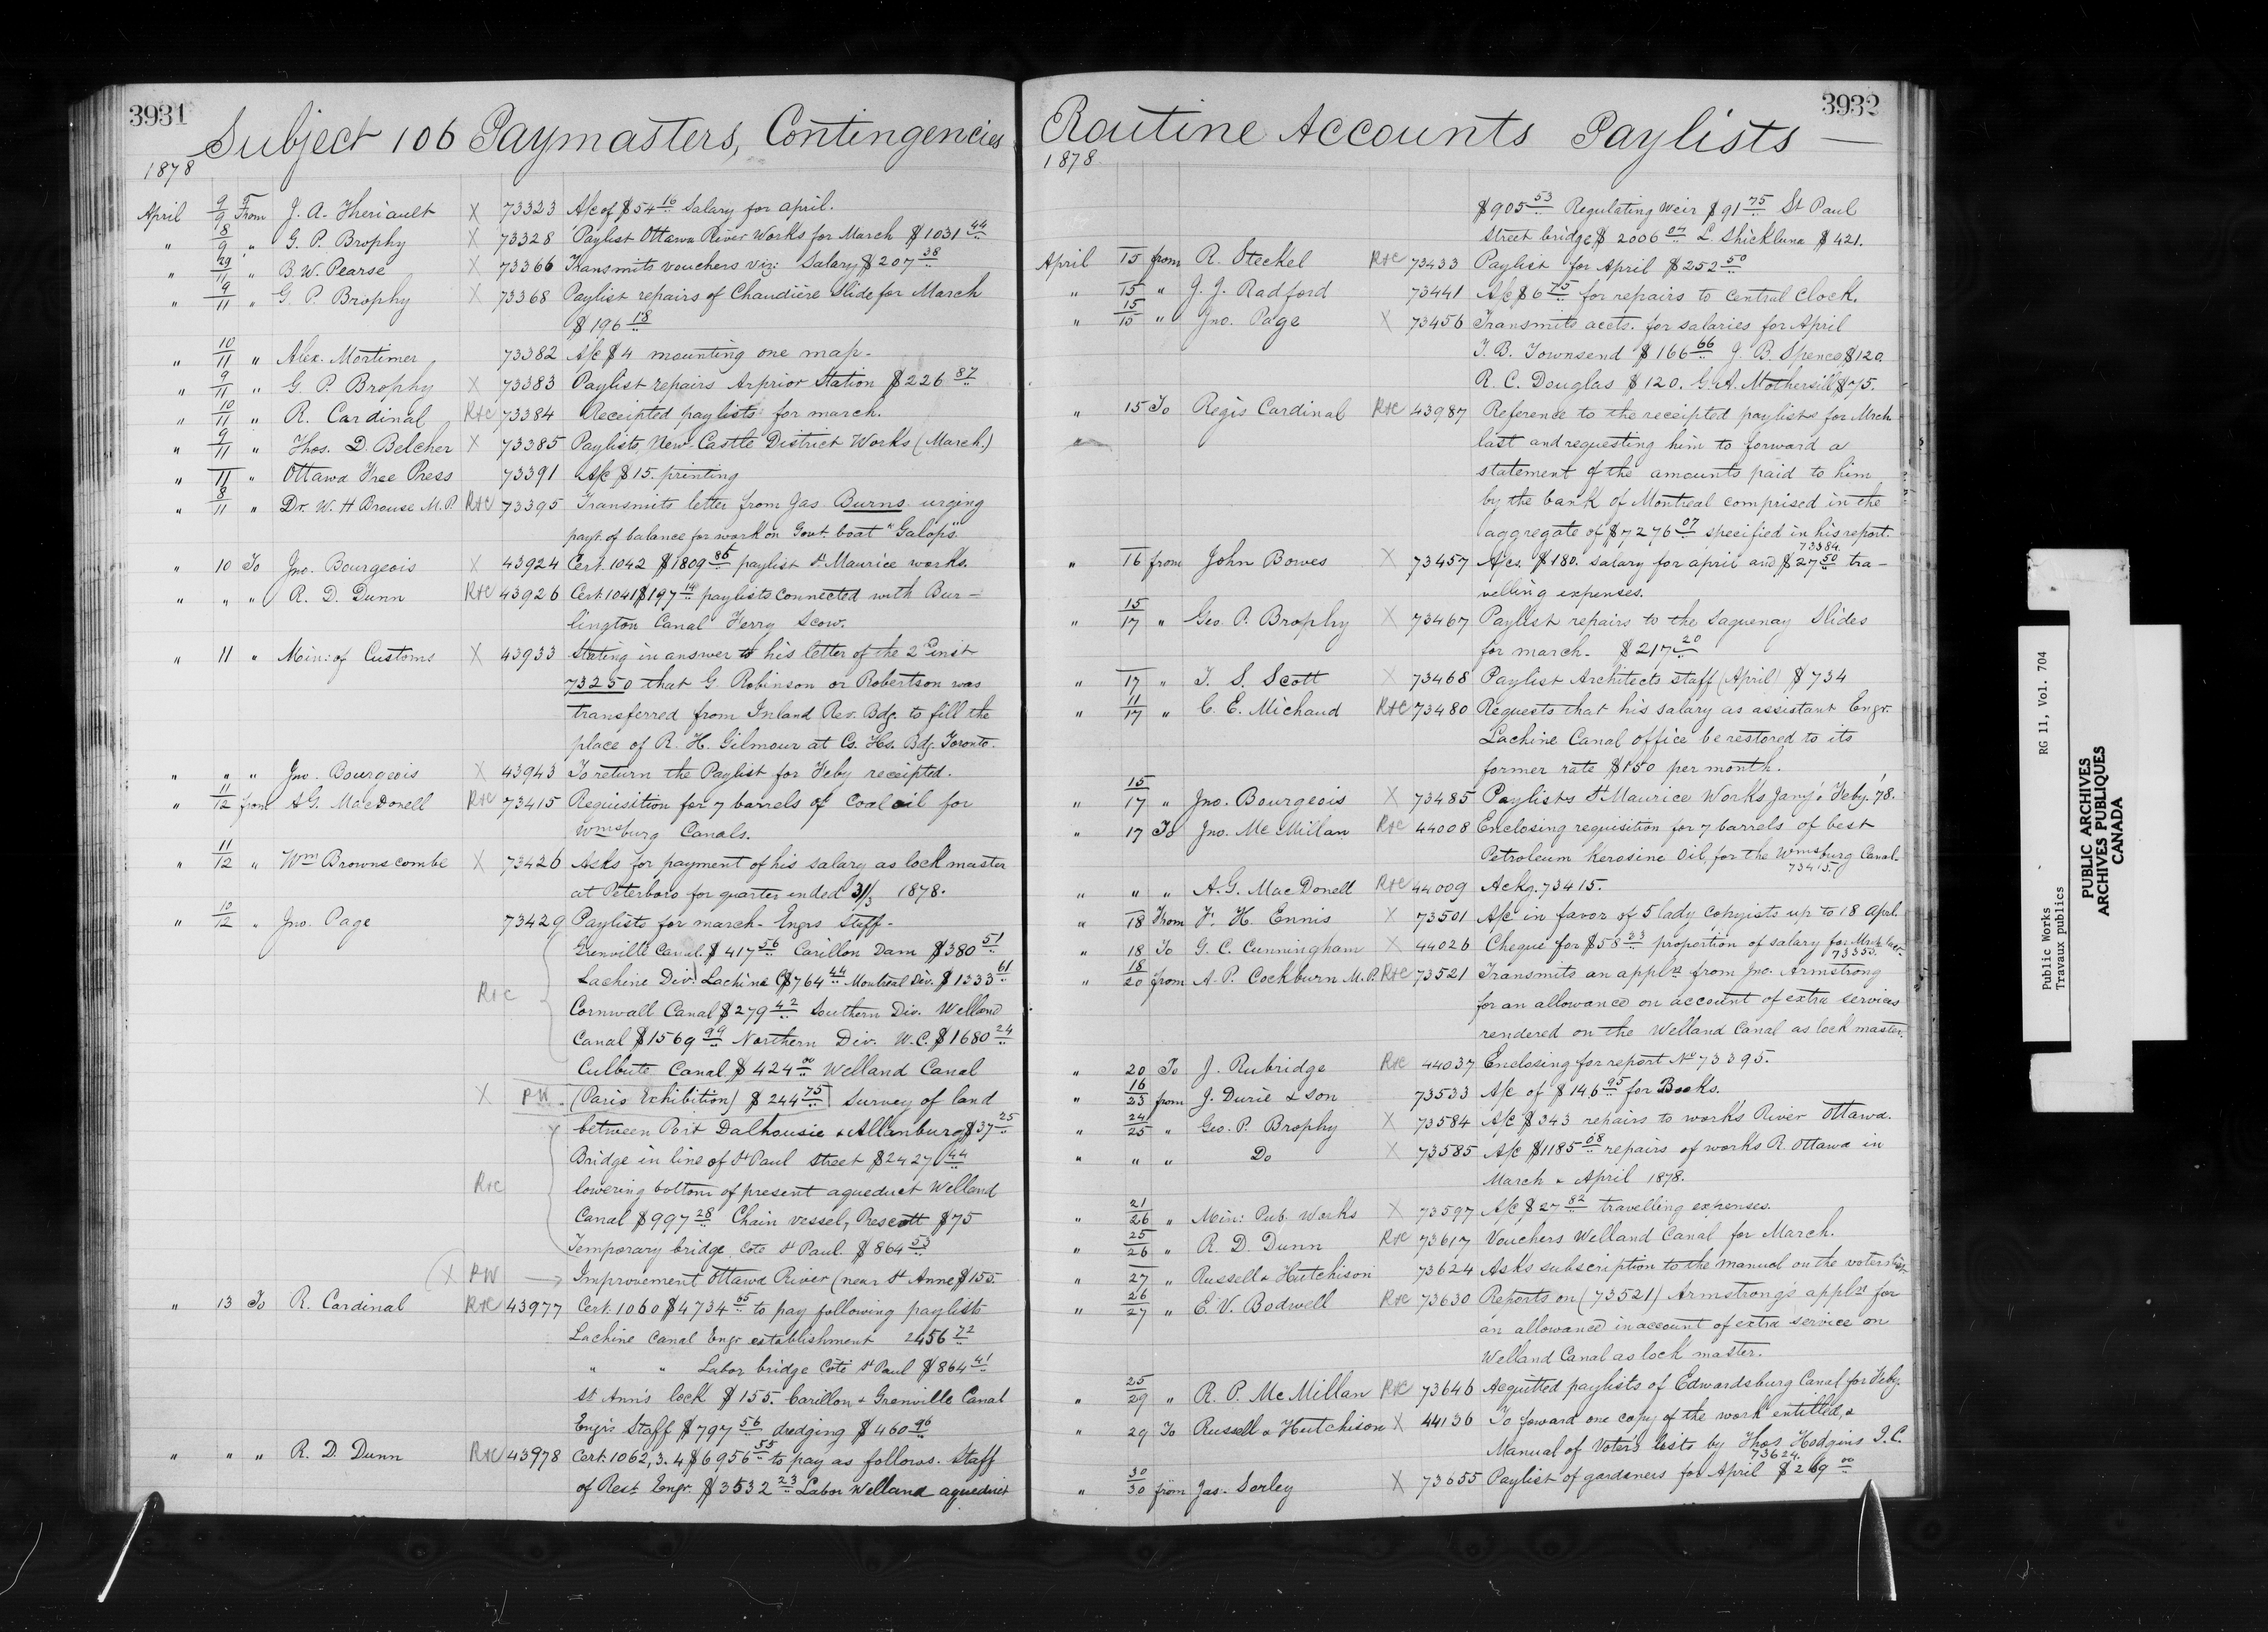 3931
Subject 106 Paymasters, Contingencies
1878
April 9/9 From J. A. Theriault X 73323 A/c of $54 16 Salary for april.
" 8/9 " G. P. Brophy X 73328 Paylist Ottawa River Works for March $1031 44
" 29/11 " B. W. Pearse X 73366 Transmits vouchers viz: Salary $207 38
" 9/11 " G. P. Brophy X 73368 Paylist repairs of Chaudière Slide for March
$196 18
" 10/11 " Alex. Mortimer 73382 A/c $4 mounting one map.
" 9/11 " G. P. Brophy X 73383 Paylist repairs Arprior Station $226 87
" 10/11 " R. Cardinal R&C 73384 Receipted paylists for march.
" 9/11 " Thos. D. Belcher X 73385 Paylists New-Castle District Works (March.)
" 11 " Ottawa Free Press 73391 A/c $15. printing
" 8/11 " Dr. W. H Brouse M.P. R&C 73395 Transmits letter from Jas Burns urging
payt. of balance for work on Govt. boat "Galops".
" 10 To Jno. Bourgeois X 43924 Cert. 1042 $1809 86 paylist St Maurice works.
" " " R. D. Dunn R&C 43926 Cert. 1041 $197 14 paylists connected with Bur-
lington Canal Ferry Scow.
" 11 " Min: of Customs X 43933 Stating in answer to his letter of the 2d inst
73250 that G. Robinson or Robertson was
transferred from Inland Rev. Bdg. to fill the
place of R. H. Gilmour at Cs. Hs. Bdg. Toronto.
" " " Jno. Bourgeois X 43943 To return the Paylist for Feby receipted.
" 11/12 from A. G. MacDonell R&C 73415 Requisition for 7 barrels of Coal oil for
Wmsburg Canals.
" 11/12 " Wm Brownscombe X 73426 Asks for payment of his salary as lock master
at Peterboro for quarter ended 31/3 1878.
" 10/12 " Jno. Page 73429 Paylists for march- Engrs Staff-
Grenville Canal $417 56 Carillon Dam $380 51
Lachine Div: Lachine C $764 44 Montreal Div. $1333 61
R&C Cornwall Canal $279 42 Southern Div. Welland
Canal $1569 99 Northern Div. W.C. $1680 24
Culbute Canal $424 00 Welland Canal
X PW. (Paris Exhibition) $244 75 Survey of land
between Port Dalhousie & Allanburg $37 25
Bridge in line of St Paul Street $2427 44
R&C lowering bottom of present aqueduct Welland
Canal $997 28 Chain vessel, Prescott $75
Temporary bridge Cote St Paul. $864 53
(X PW Improvement Ottawa River (near St Anne $155.
" 13 To R. Cardinal R&C 43977 Cert. 1060 $4734 65 to pay following paylists
Lachine Canal Engr. establishment 2456 72
" " Labor bridge Coté St Paul $864 41
St Ann's lock $155. Carillon & Grenville Canal
Engrs Staff $797 56 dredging $460 96
" " " R. D. Dunn R&C 43978 Cert. 1062, 3. 4 $6956 55 to pay as follows. Staff
of Rest Engr. $3532 23 Labor Welland aqueduct
3932
Routine Accounts Paylists —
1878.
$905 53 Regulating weir $91 75 St Paul
Street bridge $2006 07 L. Shickluna $421.
April 15 from R. Steckel R&C 73433 Paylist for April $252 50
" 15 " J. J. Radford 73441 A/c $6 75 for repairs to central clock.
" 15/15 " Jno. Page X 73456 Transmits accts. for salaries for April
T. B. Townsend $166 66 J. B. Spence $120.
R. C. Douglas $120. G. A. Mothersill $75.
" 15 To Regis Cardinal R&C 43987 Reference to the receipted paylists for Mrch
last and requesting him to forward a
statement of the amounts paid to him
by the bank of Montreal comprised in the
aggregate of $7276 07 specified in his report.
73384.
" 16 from John Bowes X 73457 A/cs. $180. salary for april and $27 50 tra-
velling expenses.
" 15/17 " Geo. P. Brophy X 73467 Paylist repairs to the Saguenay Slides
for march. $217 20
" 17 " T. S. Scott X 73468 Paylist Architects staff (April) $734
" 11/17 " C. E. Michaud R&C 73480 Requests that his salary as assistant Engr.
Lachine Canal office be restored to its
former rate $150 per month.
" 15/17 " Jno. Bourgeois X 73485 Paylists St Maurice Works Jany & Feby. '78.
" 17 To Jno. Mc Millan R&C 44008 Enclosing requisition for 7 barrels of best
Petroleum Kerosine Oil, for the Wmsburg Canal.
73415.
" " " A. G. MacDonell R&C 44009 Ackg. 73415.
" 18 From F. H. Ennis X 73501 A/c in favor of 5 lady copyists up to 18 April.
" 18 To G. C. Cunningham X 44026 Cheque for $58 33 proportion of salary for Mrch last.
73353.
" 18/20 from A. P. Cockburn M.P. R&C 73521 Transmits an appln from Jno. Armstrong
for an allowance on account of extra services
rendered on the Welland Canal as lock master.
" 20 To J. Rubridge R&C 44037 Enclosing for report No 73395.
" 16/23 from J. Durie & Son 73533 A/c of $146 95 for Books.
" 24/25 " Geo. P. Brophy X 73584 A/c $343 repairs to works River Ottawa.
" " " Do X 73585 A/c $1185 08 repairs of works R. Ottawa in
March & April 1878.
" 21/26 " Min: Pub. Works X 73597 A/c $27 82 travelling expenses.
" 25/26 " R. D. Dunn R&C 73617 Vouchers Welland Canal for March.
" 27 " Russell & Hutchison 73624 Asks subscription to the manual on the voters list.
" 26/27 " E. V. Bodwell R&C 73630 Reports on (73521) Armstrong's appln for
an allowance in account of extra service on
Welland Canal as lock master.
" 25/29 " R. P. McMillan R&C 73646 Acquitted paylists of Edwardsburg Canal for Feby.
" 29 To Russell & Hutchison X 44136 To foward one copy of the work entitled, a
Manual of Voter's lists by Thos Hodgins Q.C.
73624.
" 30/30 from Jas. Sorley X 73655 Paylist of gardeners for April $269 00
Public Works RG 11, Vol. 704
Travaux publics
PUBLIC ARCHIVES
ARCHIVES PUBLIQUES
CANADA